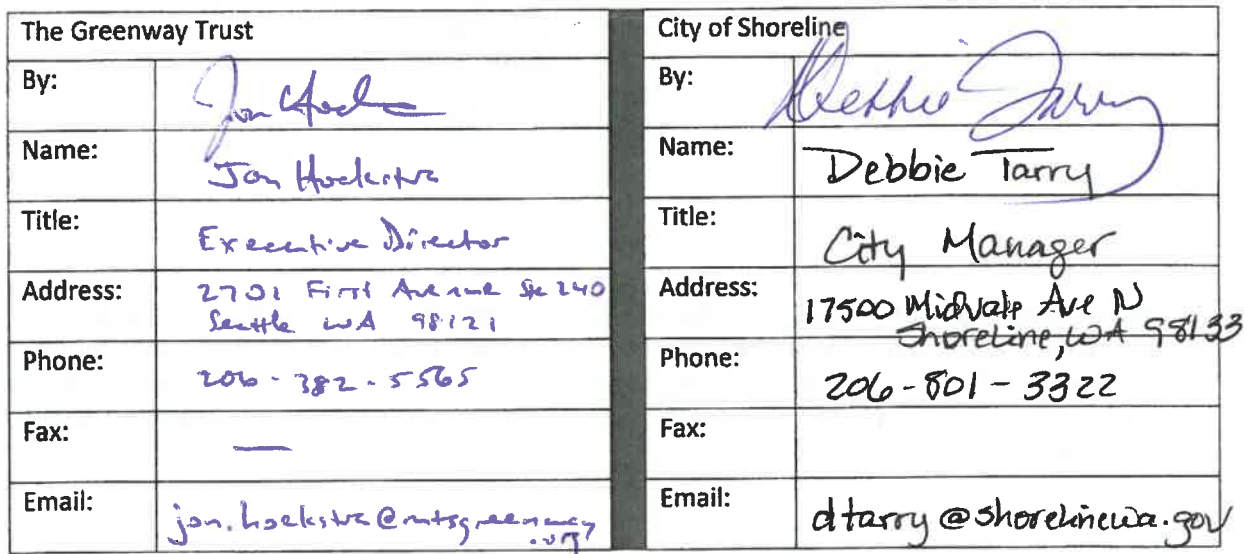 The Greenway Trust
By: Jon Hoek
Name: Jon Hoekstra
Title: Executive Director
Address: 2701 First Avenue Ste 240
Seattle WA 98121
Phone: 206-382-5565
Fax: —
Email: jon.hoekstra@mtsgreenway
.org
City of Shoreline
By: Debbie Tarry
Name: Debbie Tarry
Title: City Manager
Address: 17500 Midvale Ave N
Shoreline, WA 98133
Phone: 206-801-3322
Fax:
Email: dtarry@shorelinewa.gov